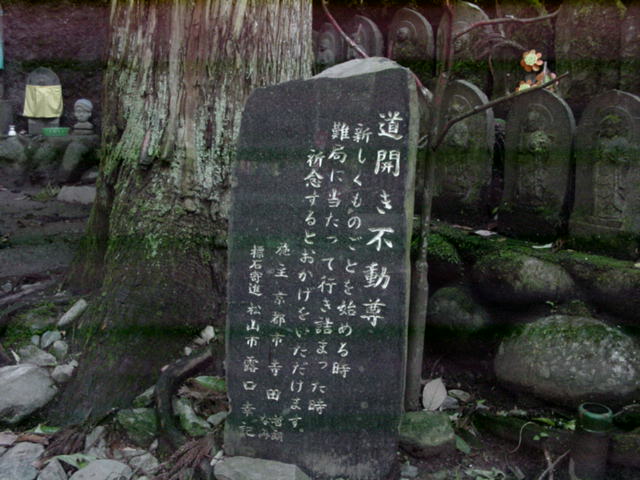 道開き不動尊
新しくものごとを始める時
難局に当たって行き詰まった時
祈念するとおかげをいただけます。
施主 京都市 寺田
標石寄進 松山市 露口 幸記